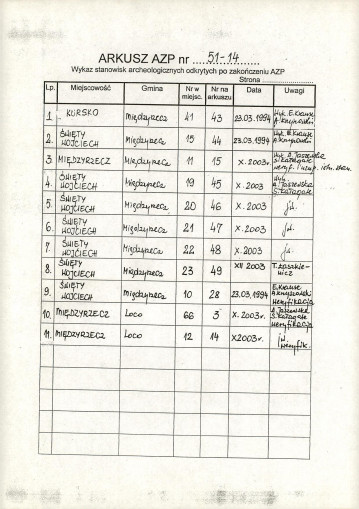 ARKUSZ AZP nr 51-14
Wykaz stanowisk archeologicznych odkrytych po zakończeniu AZP
Strona
Lp. Miejscowość Gmina Nr w miejsc. Nr na arkuszu Data Uwagi
1. KURSKO Międzyrzecz 41 43 23.03.1994
2. ŚWIĘTY WOJCIECH Międzyrzecz 15 44 23.03.1994
3 MIĘDZYRZECZ Międzyrzecz 11 15 X.2003r.
4. ŚWIĘTY WOJCIECH Międzyrzecz 19 45 X.2003
5. ŚWIĘTY WOJCIECH Międzyrzecz 20 46 X.2003 jw.
6. ŚWIĘTY WOJCIECH Międzyrzecz 21 47 X.2003 jw.
7. ŚWIĘTY WOJCIECH Międzyrzecz 22 48 X.2003 jw.
8. ŚWIĘTY WOJCIECH Międzyrzecz 23 49 XII 2003 T. Łaszkiewicz
9. ŚWIĘTY WOJCIECH Międzyrzecz 10 28 23.03.1994 weryfikacja
10. MIĘDZYRZECZ Loco 66 3 X.2003r. weryfikacja
11. MIĘDZYRZECZ Loco 12 14 X2003r. jw. weryfik.